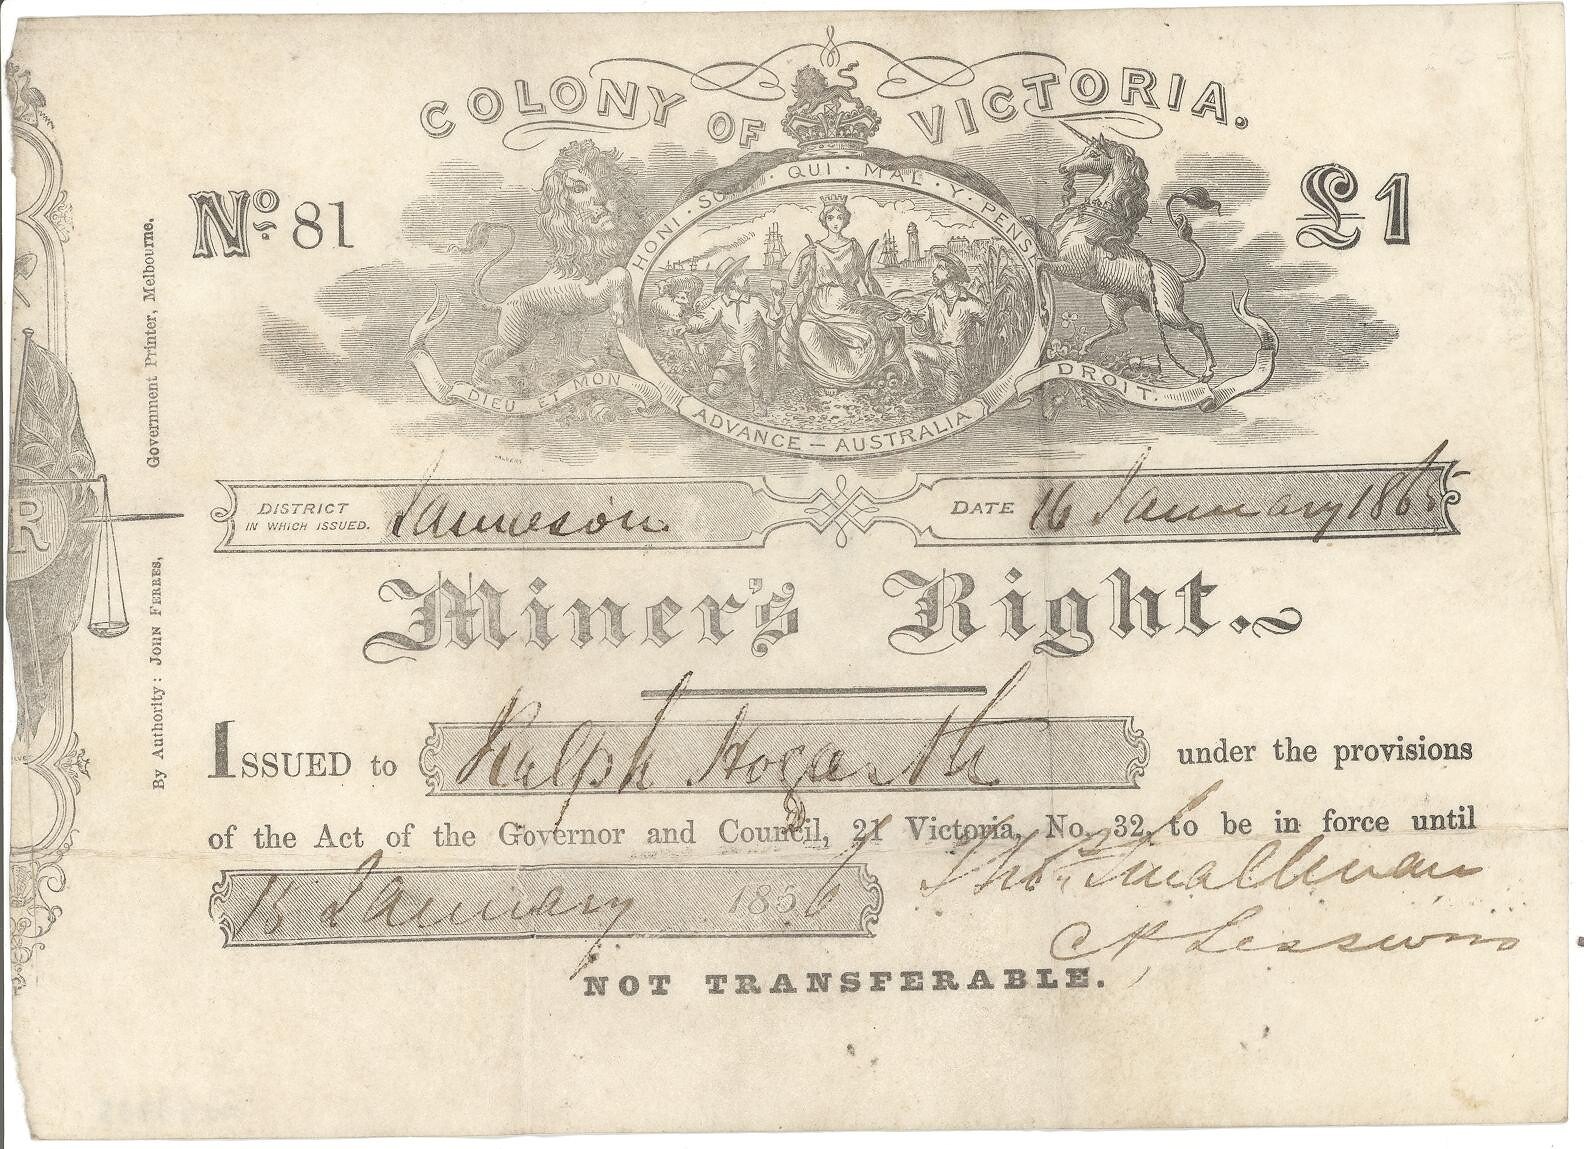 COLONY OF VICTORIA.
No. 81
£1
HONI · SOIT · QUI · MAL · Y · PENSE
DIEU ET MON DROIT.
ADVANCE — AUSTRALIA
DISTRICT IN WHICH ISSUED. Jamieson
DATE 16 January 1865
Miner's Right.
ISSUED to Ralph Hogarth under the provisions
of the Act of the Governor and Council, 21 Victoria, No. 32, to be in force until
15 January 1866
Smallman
NOT TRANSFERABLE.
By Authority: JOHN FERRES, Government Printer, Melbourne.
R